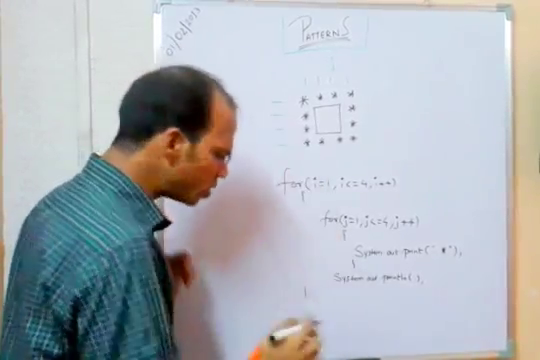 01/02/2017
PATTERNS
* * * *
* *
* *
* * * *
for(i=1, i<=4, i++)
{
for(j=1, j<=4, j++)
{
System.out.print(" *");
}
System.out.println( );
}